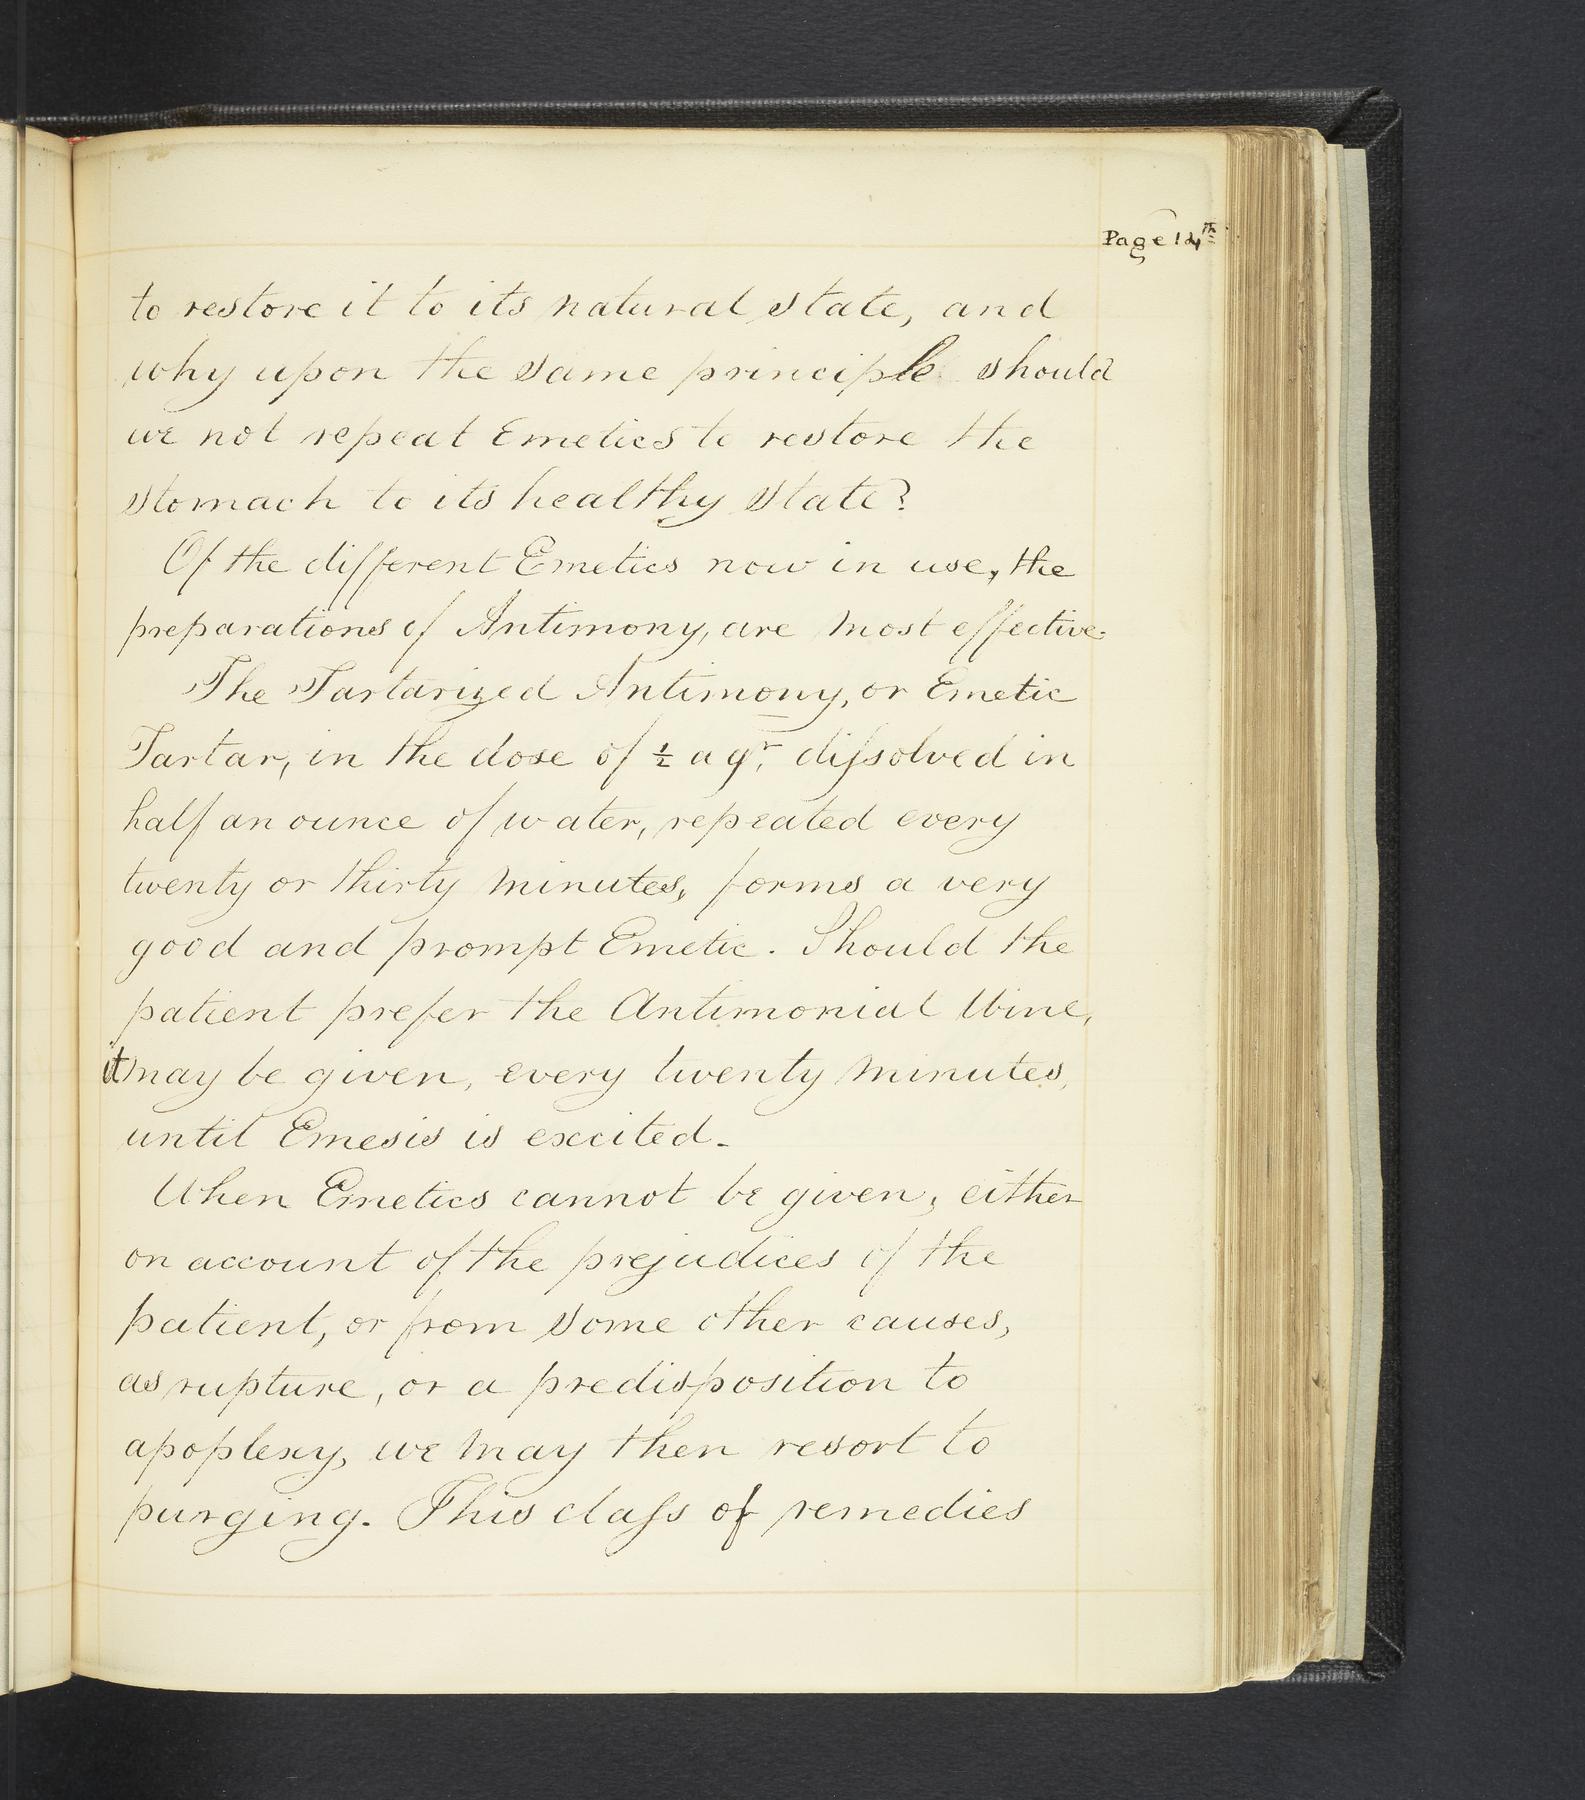 Page 14th
to restore it to its natural state, and
why upon the same principle should
we not repeat Emetics to restore the
stomach to its healthy state?
Of the different Emetics now in use, the
preparations of Antimony, are most effective.
The Tartarized Antimony, or Emetic
Tartar, in the dose of ½ a gr. dissolved in
half an ounce of water, repeated every
twenty or thirty minutes, forms a very
good and prompt Emetic. Should the
patient prefer the Antimonial Wine,
it may be given, every twenty minutes,
until Emesis is excited.
When Emetics cannot be given, either
on account of the prejudices of the
patient, or from some other causes,
as rupture, or a predisposition to
apoplexy, we may then resort to
purging. This class of remedies